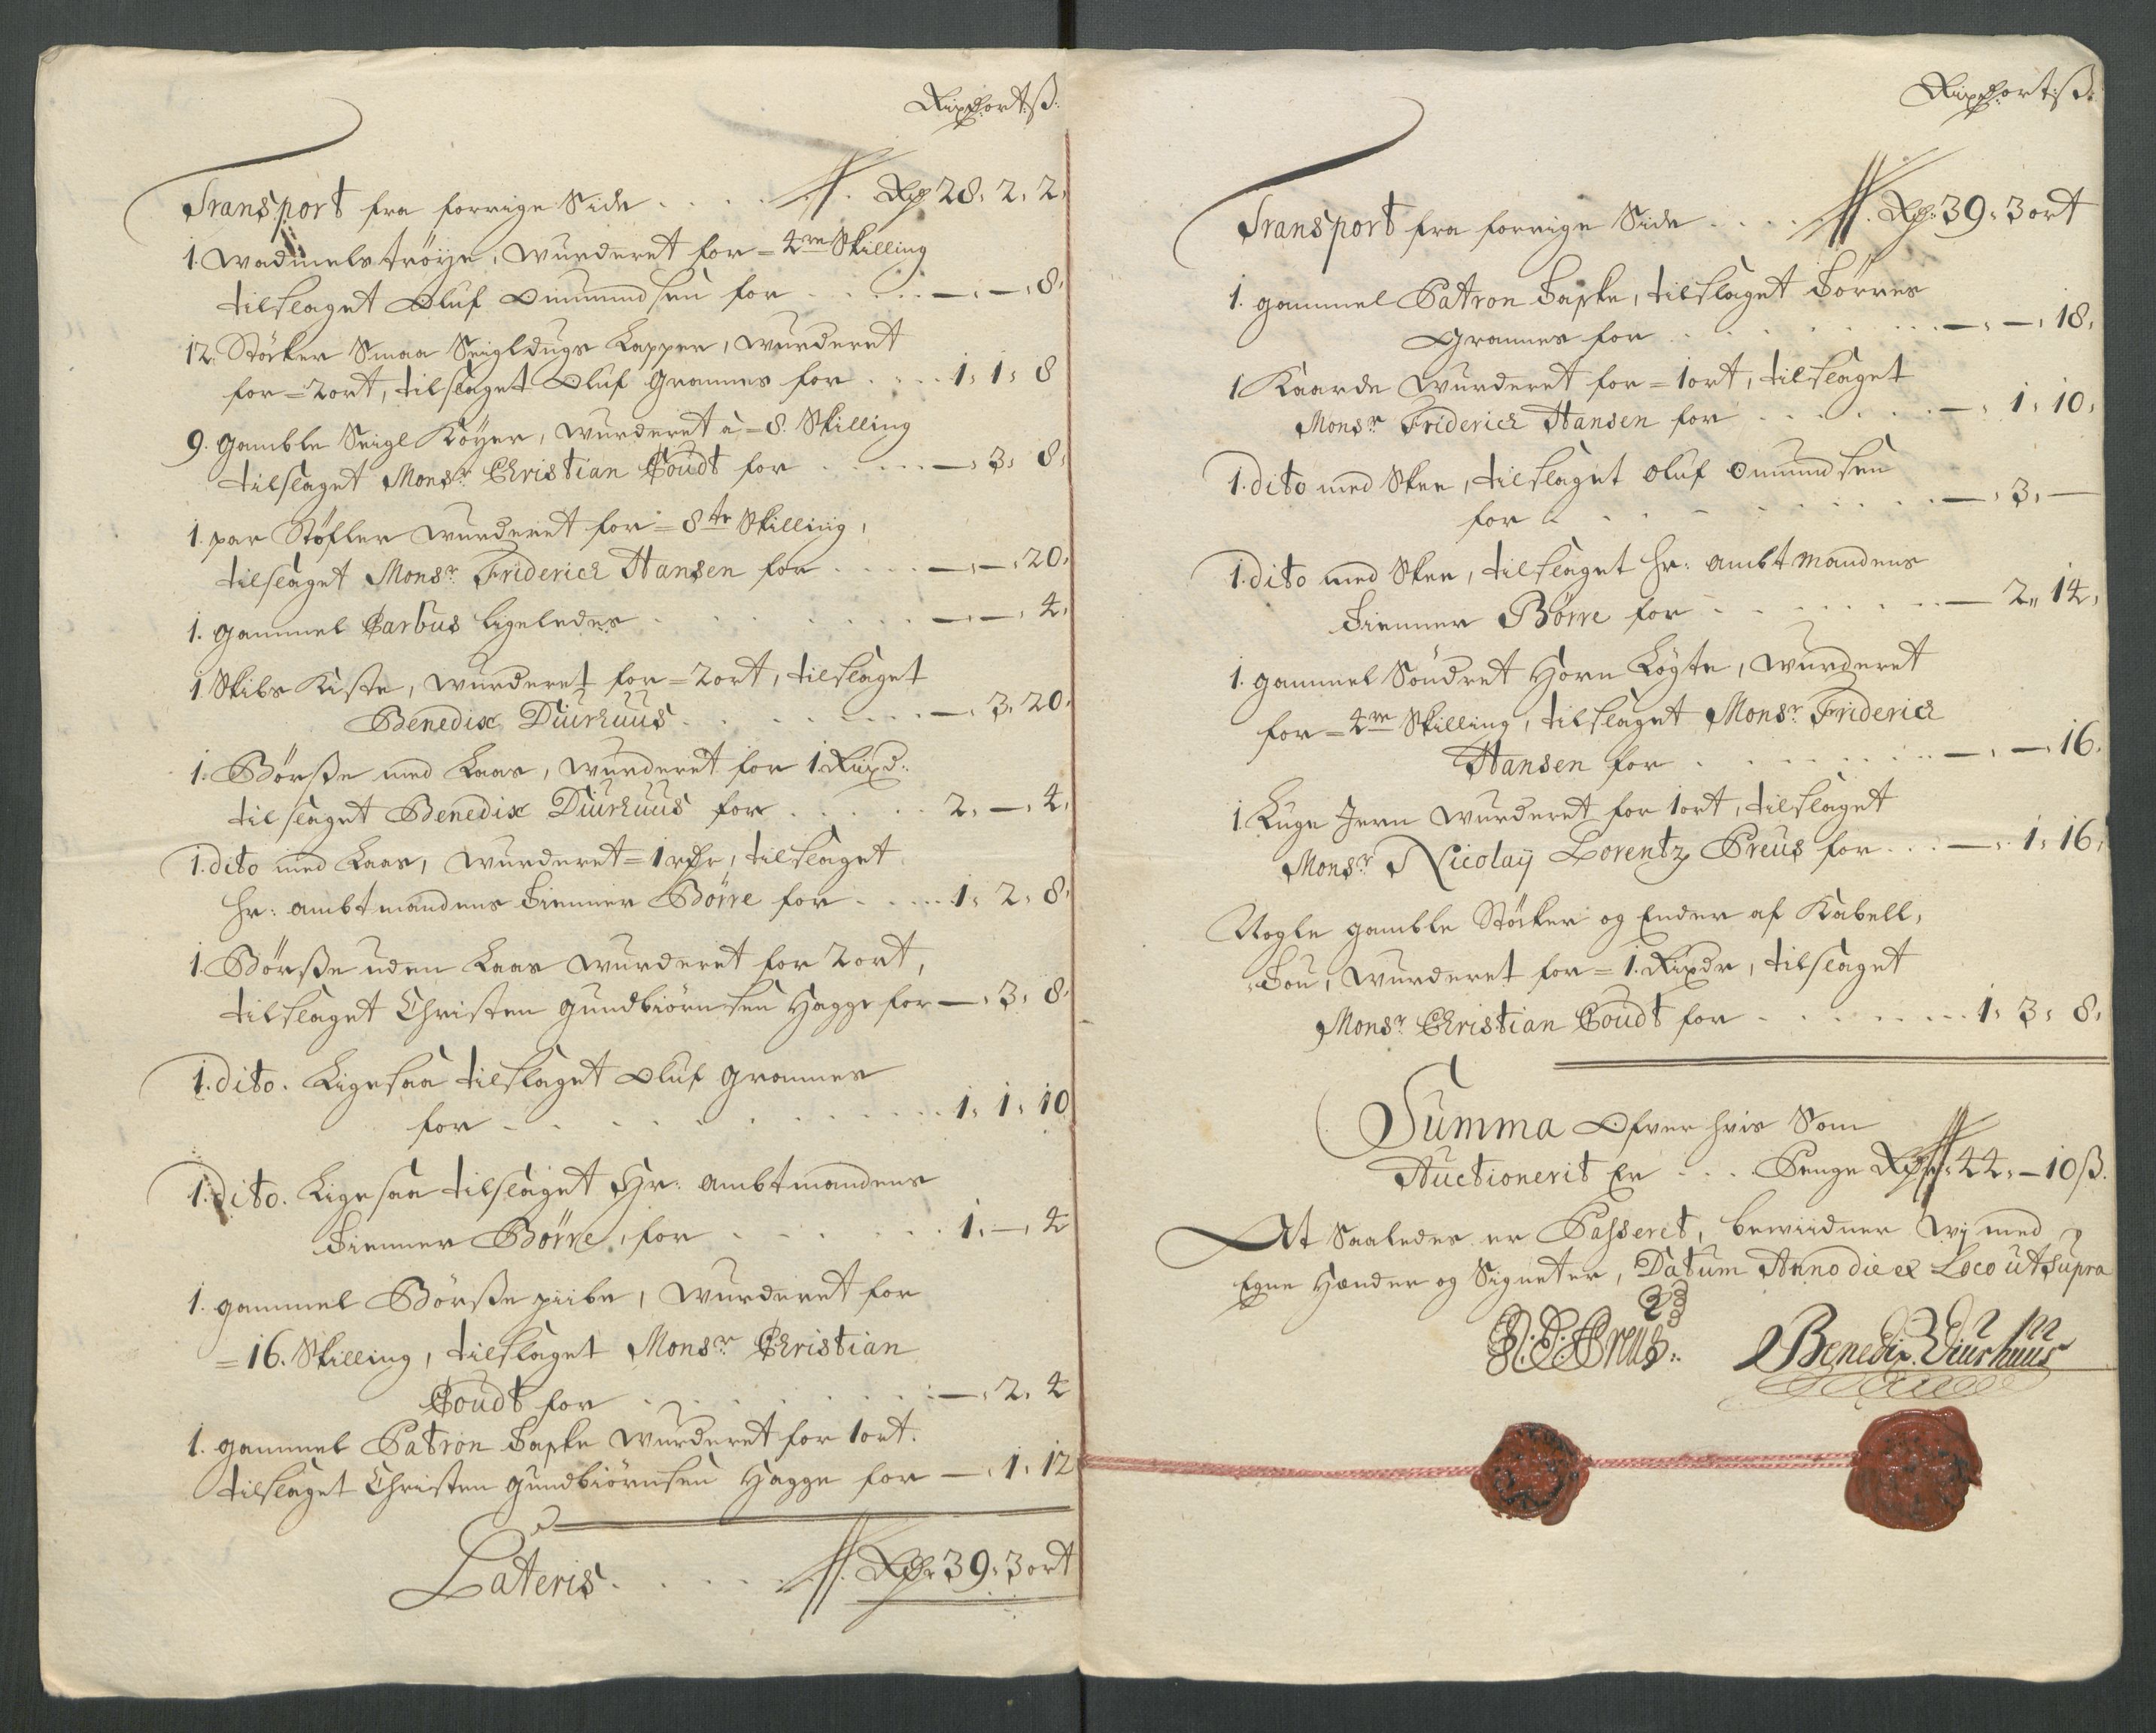 Rixdr ort ß
Transport fra forrige Side . . . . . Rdr 28. 2. 2.
1. Wadmels trøye, wurderet for = 4re Skilling
tilslaget Oluf Omundsen for . . . . . — . — . 8.
12. Støcker Smaa Seigldugs Lapper, wurderet
for = 2 ort, tilslaget Oluf Grannes for . . . . 1. 1. 8
9. gamble Seigl Køyer, wurderet à = 8. Skilling
tilslaget Monsr. Christian Goudt for . . . . . — . 3. 8.
1. par Støfler wurderet for = 8te Skilling,
tilslaget Monsr. Friderich Hansen for . . . . — . — . 20.
1. gammel Carbus ligeledes . . . . . . . — . — . 4.
1 Skibs Kiste, wurderet for = 2 ort, tilslaget
Benedix Diurhuus . . . . . . . — . 3. 20.
1. Børsse med Laas, wurderet for 1 Rixd.
tilslaget Benedix Diurhuus for . . . . . 2. — . 4.
1. dito med Laas, wurderet = 1 rdr, tilslaget
Hr: ambtmandens Tienner Børre for . . . . . 1. 2. 8.
1. Børsse uden Laas wurderet for 2 ort,
tilslaget Christen Gundbiørnsen Hagge for — . 3. 8.
1. dito. Ligesaa tilslaget Oluf Grannes
for . . . . . . . . . . 1. 1. 10
1. dito. Ligesaa tilslaget Hr: ambtmandens
Tienner Børre, for . . . . . . 1. — . 4
1. gammel Børsse piibe, wurderet for
= 16. Skilling, tilslaget Monsr Christian
Goudt for . . . . . . . . — . 2. 4
1. gammel Patron Taske wurderet for 1 ort.
tilslaget Christen Gundbiørnsen Hagge for — . 1. 12
Lateris . . . . . Rdr 39. 3 ort
Rixdr ort ß
Transport fra forrige Side . . . . Rdr. 39. 3 ort
1. gammel Patron Taske, tilslaget Børres
Grannes for . . . . . . . — . — . 18.
1 Kaarde wurderet for = 1 ort, tilslaget
Monsr. Friderich Hansen for . . . . . . — . 1. 10.
1. dito med Skee, tilslaget Oluf Omundsen
for . . . . . . . . . — . 3. —
1. dito med Skee, tilslaget Hr: ambtmandens
Tienner Børre for . . . . . . . — 2. 14.
1. gammel Søndret Horn Løgte, wurderet
for = 4re Skilling, tilslaget Monsr. Friderich
Hansen for . . . . . . . — . — . 16.
1. Luge Jern wurderet for 1 ort, tilslaget
Monsr Nicolaij Lorentz Preus for . . . — . 1. 16.
Nogle gamble Støcker og Ender af Kabell,
Tou, wurderet for = 1. Rixdr, tilslaget
Monsr. Christian Goudt for . . . . . . . 1. 3. 8.
Summa Ofver hvis Som
Auctionerit Er . . . Penge Rdr. 44. — 10 ß.
At Saaledes er Passeret, bewiidner Wj med
Egne Hænder og Signeter, Datum Anno die et Loco ut Supra
N: L: Preus:.
Benedix Diurhuus